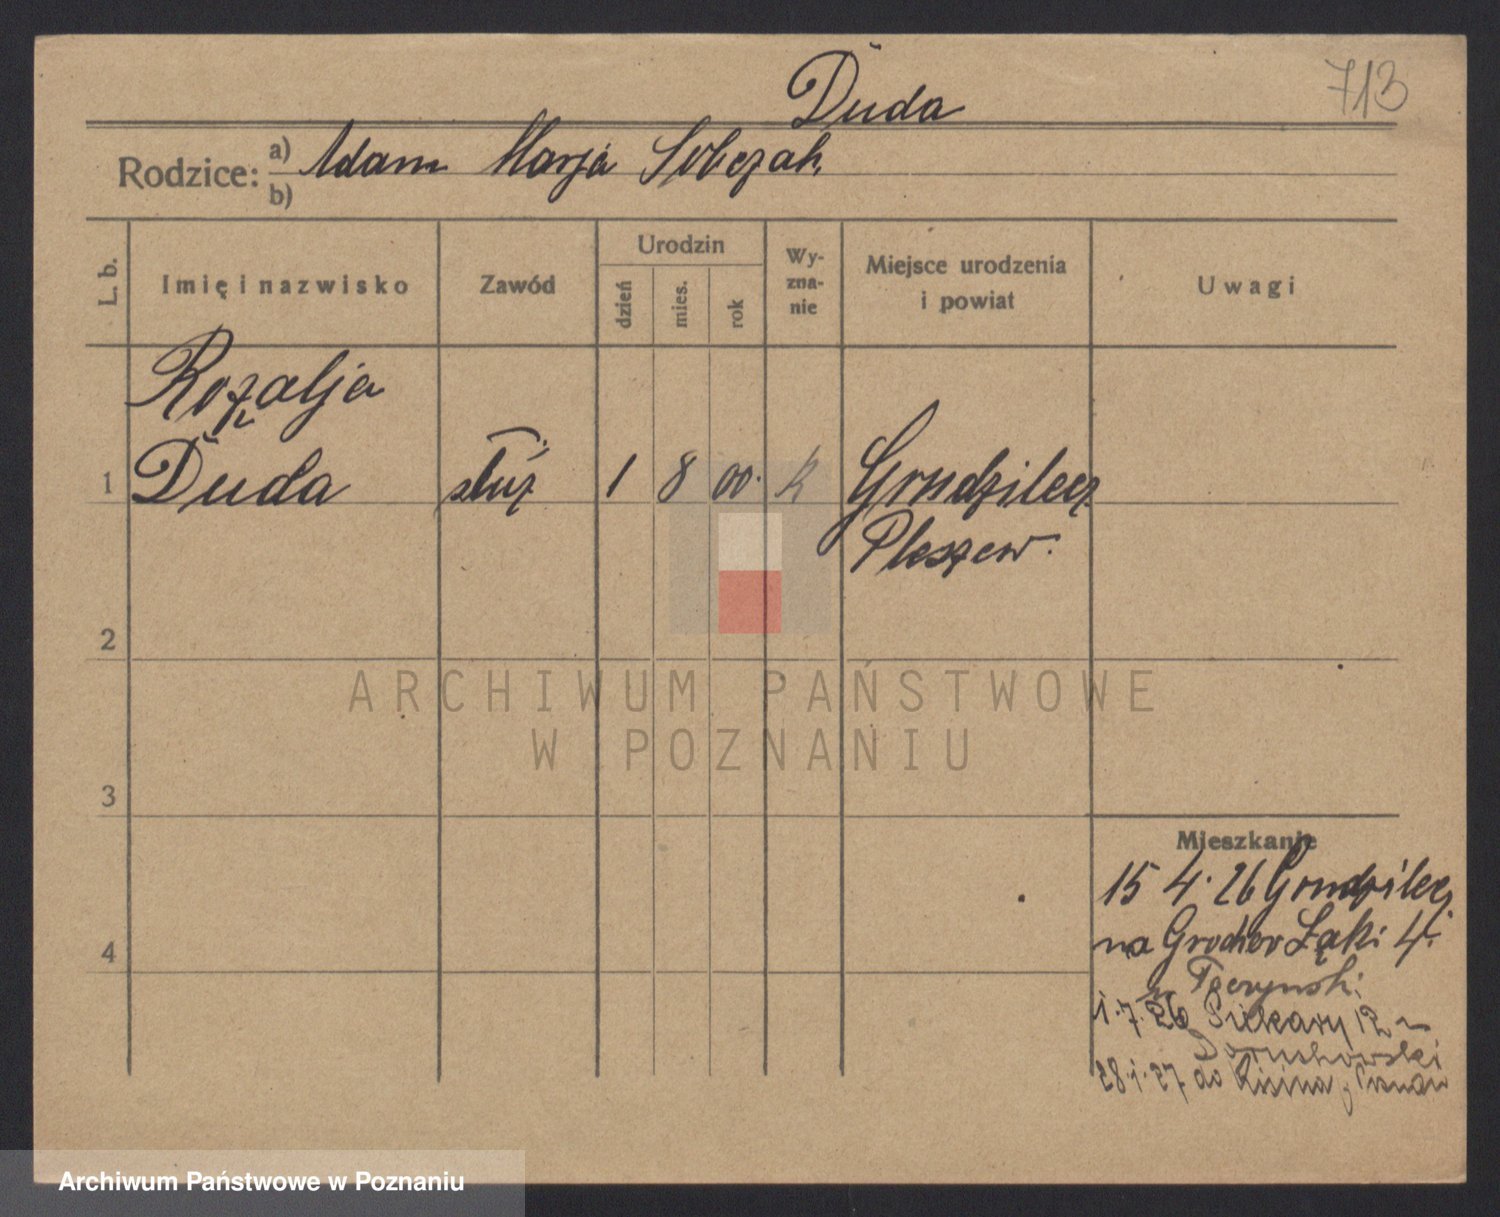 Duda
713
Rodzice: a) Adam Marja Sobczak
b)
L. b.
Imię i nazwisko
Zawód
Urodzin
dzień
mies.
rok
Wy-
zna-
nie
Miejsce urodzenia
i powiat
Uwagi
Rozalja
1 Duda służ 1 8 00. k Grudzilecz
Pleszew.
2
3
4
Mieszkanie
15 4. 26 Grudzilecz
na Grochov Łąki 4.
Tęczynski
1.7.26 Piekary 12
Doruchowski
28.1.27 do
ARCHIWUM PAŃSTWOWE
W POZNANIU
Archiwum Państwowe w Poznaniu